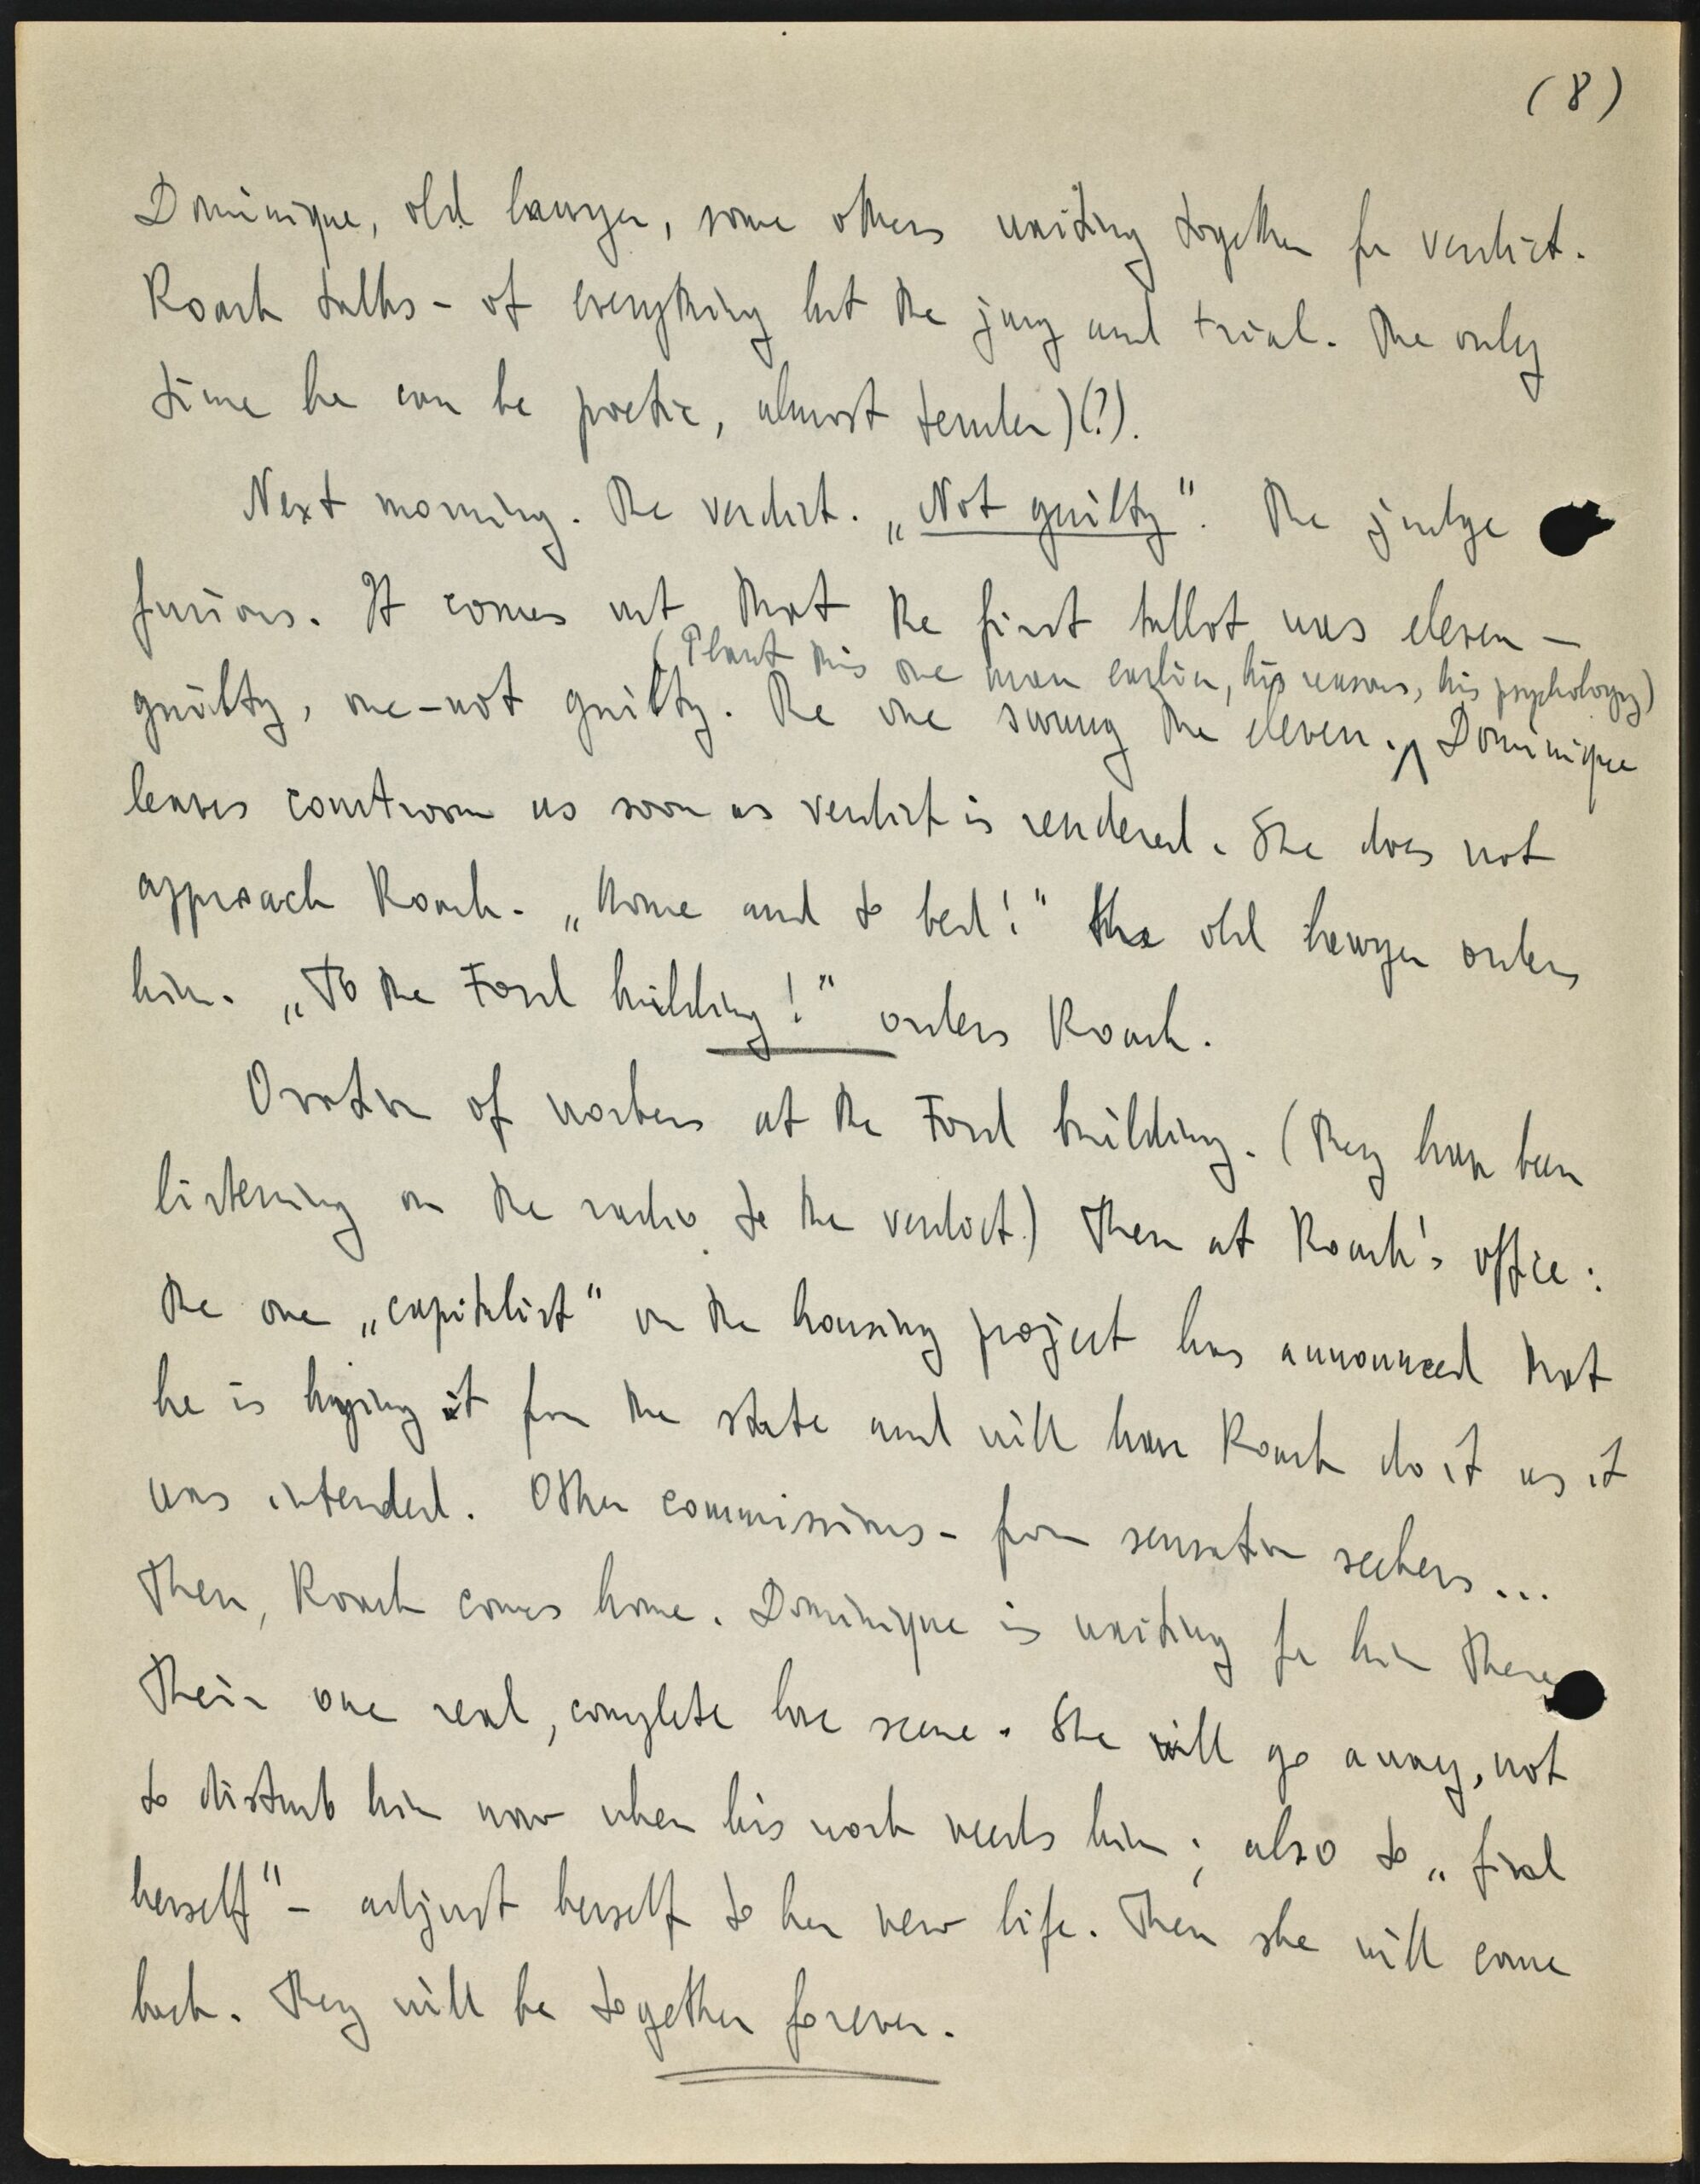 (8)
Dominique, old lawyer, some others waiting together for verdict.
Roark talks - of everything but the jury and trial. The only
time he can be poetic, almost tender)(?).
Next morning. The verdict. „Not guilty". The judge
furious. It comes out that the first ballot was eleven –
(Plant this one man earlier, his reasons, his psychology)
guilty, one – not guilty. The one swung the eleven. ^ Dominique
leaves courtroom as soon as verdict is rendered. She does not
approach Roark. „Home and to bed!" the old lawyer orders
him. „To the Ford building!" orders Roark.
Ovation of workers at the Ford building. (They have been
listening on the radio to the verdict.) Then at Roark's office:
the one „capitalist" on the housing project has announced that
he is buying it from the state and will have Roark do it as it
was intended. Other commissions - from sensation seekers...
Then, Roark comes home. Dominique is waiting for him there
Their one real, complete love scene. She will go away, not
to disturb him now when his work needs him; also to „find
herself" – adjust herself to her new life. Then she will come
back. They will be together forever.